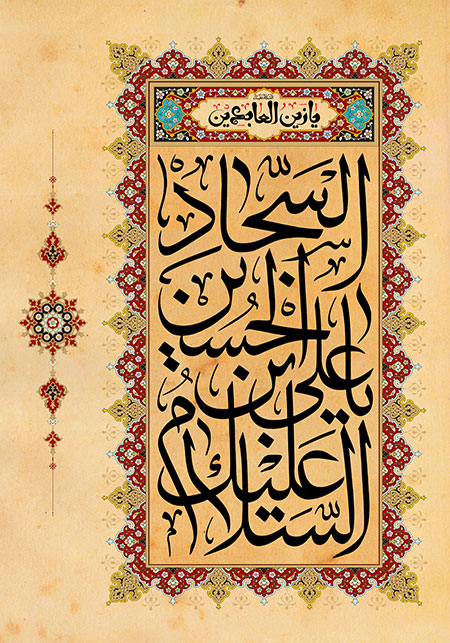 یا زین العابدین
السلام علیک
یا علی ابن
الحسین
السجاد